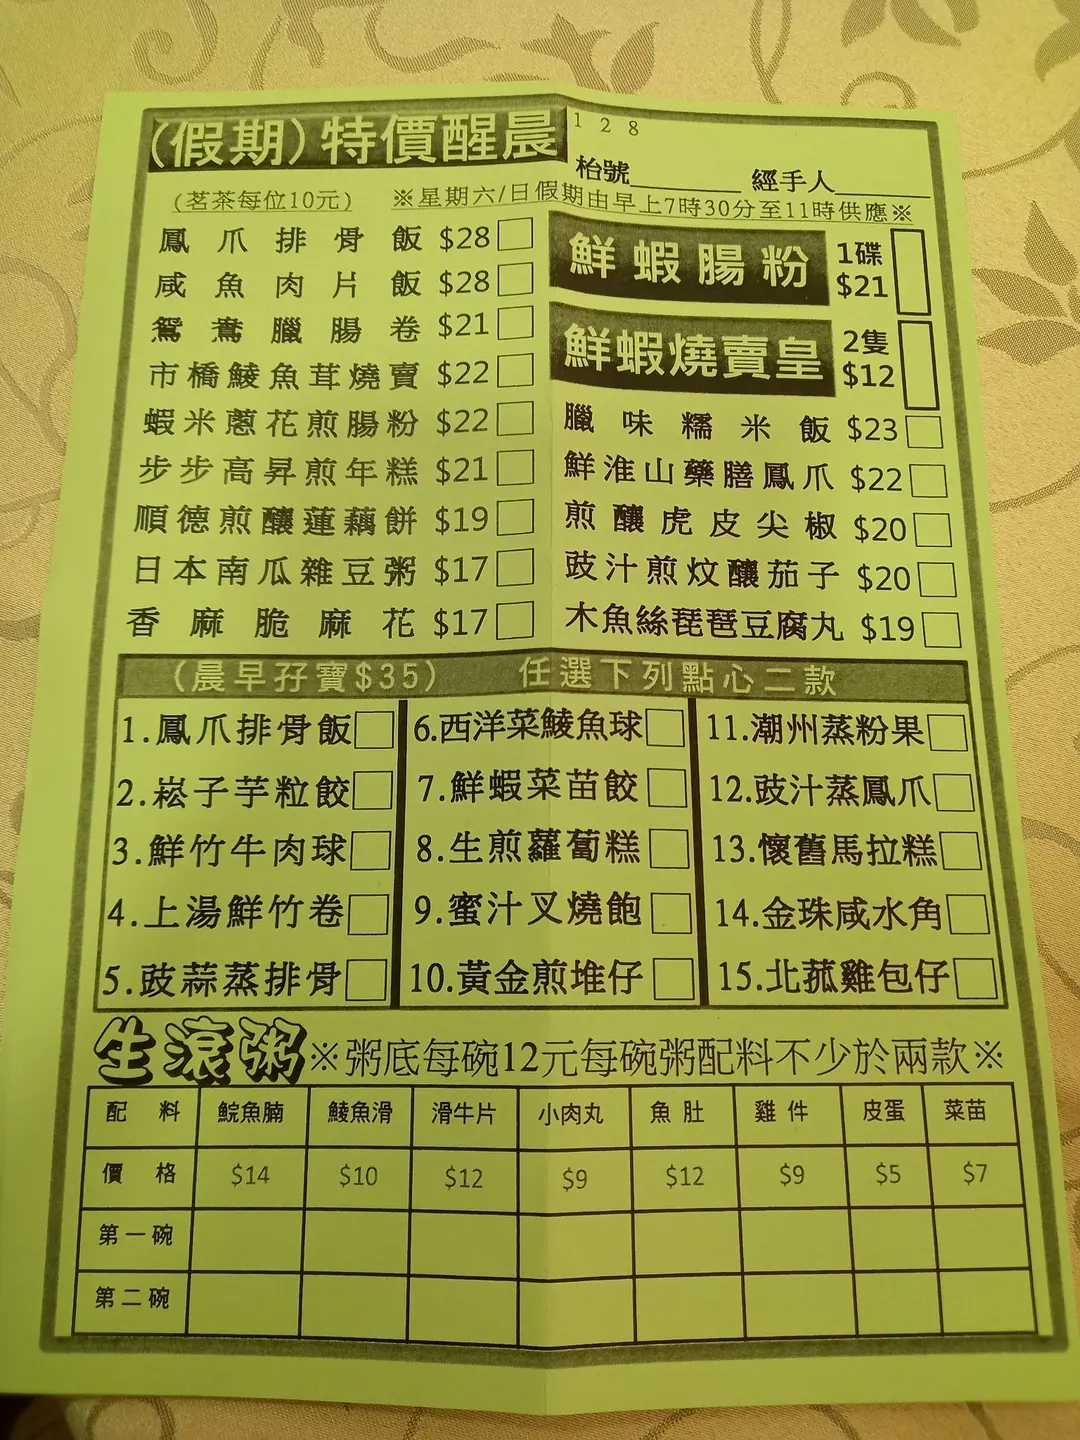 (假期)特價醒晨
128
枱號________ 經手人________
(茗茶每位10元) ※星期六/日假期由早上7時30分至11時供應※
鳳爪排骨飯 $28
咸魚肉片飯 $28
鴛鴦臘腸卷 $21
市橋鯪魚茸燒賣 $22
蝦米蔥花煎腸粉 $22
步步高昇煎年糕 $21
順德煎釀蓮藕餅 $19
日本南瓜雜豆粥 $17
香麻脆麻花 $17
鮮蝦腸粉 1碟 $21
鮮蝦燒賣皇 2隻 $12
臘味糯米飯 $23
鮮淮山藥膳鳳爪 $22
煎釀虎皮尖椒 $20
豉汁煎炆釀茄子 $20
木魚絲琵琶豆腐丸 $19
(晨早孖寶$35) 任選下列點心二款
1.鳳爪排骨飯
2.崧子芋粒餃
3.鮮竹牛肉球
4.上湯鮮竹卷
5.豉蒜蒸排骨
6.西洋菜鯪魚球
7.鮮蝦菜苗餃
8.生煎蘿蔔糕
9.蜜汁叉燒飽
10.黃金煎堆仔
11.潮州蒸粉果
12.豉汁蒸鳳爪
13.懷舊馬拉糕
14.金珠咸水角
15.北菰雞包仔
生滾粥※粥底每碗12元每碗粥配料不少於兩款※
配料 鯇魚腩 鯪魚滑 滑牛片 小肉丸 魚肚 雞件 皮蛋 菜苗
價格 $14 $10 $12 $9 $12 $9 $5 $7
第一碗
第二碗